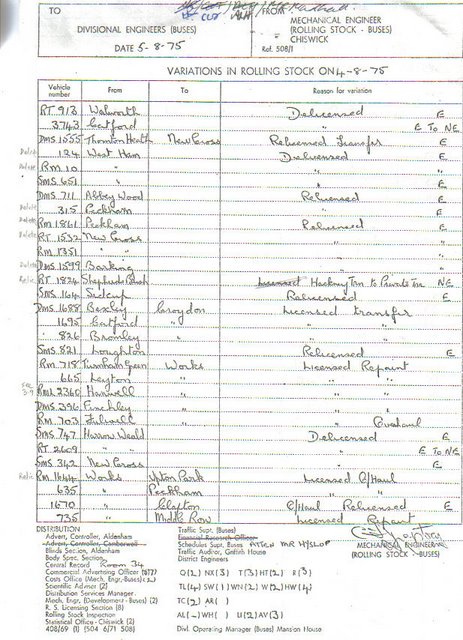 TO
FROM
DIVISIONAL ENGINEERS (BUSES)
MECHANICAL ENGINEER
(ROLLING STOCK - BUSES)
CHISWICK
DATE 5-8-75
Ref. 508/1
VARIATIONS IN ROLLING STOCK ON 4-8-75
Vehicle number From To Reason for variation
RT 913 Walworth Delicensed E
3743 Catford " E TO NE
DMS 1555 Thornton Heath New Cross Relicensed Transfer E
124 West Ham Delicensed E
RM 10 " " "
SMS 651 " " E
DMS 711 Abbey Wood Relicensed E
315 Peckham " E
RM 1861 Peckham Relicensed E
RT 1532 New Cross " "
RM 1351 " " " "
DMS 1599 Barking " "
RT 1824 Shepherds Bush Licensed Hackney Tan to Private Tan NE
SMS 164 Sidcup Relicensed E
DMS 1688 Bexley Croydon Licensed transfer
1695 Catford " " "
826 Bromley " " "
SMS 821 Loughton Relicensed E
RM 718 Turnham Green Works Licensed Repaint
665 Leyton " " "
2360 Hanwell " " "
DMS 396 Finchley " " "
RM 703 Fulwell " " Overhaul
SMS 747 Harrow Weald Delicensed E
RT 2609 " " E TO NE
SMS 342 New Cross " E
RM 1644 Works Upton Park Licensed O/Haul
635 " Peckham " "
1670 " Clapton O/Haul Relicensed E
735 " Middle Row Licensed Repaint
MECHANICAL ENGINEER
(ROLLING STOCK - BUSES)
DISTRIBUTION
Advert, Controller, Aldenham
Advert, Controller, Camberwell
Blinds Section, Aldenham
Body Spec. Section,
Central Record Room 34
Commercial Advertising Officer (5)(7)
Costs Office (Mech. Engr.-Buses)(2)
Scientific Adviser (2)
Distribution Services Manager
Mech. Engr. (Development - Buses) (2)
R. S. Licensing Section (8)
Rolling Stock Inspection
Statistical Office - Chiswick (2)
408/69 (1) (504 6/71 508)
Traffic Supt. (Buses)
Financial Research Officer
Schedules Supt. Buses ATTEN MR HYSLOP
Traffic Auditor, Griffith House
District Engineers
Q(2) NX(3) T(3) HT(2) R(3)
TL(4) SW(1) WN(2) W(2) HW(4)
TC(2) AR( )
AL(-) WH( ) U(2) AV(3)
Divl. Operating Manager (Buses) Mansion House